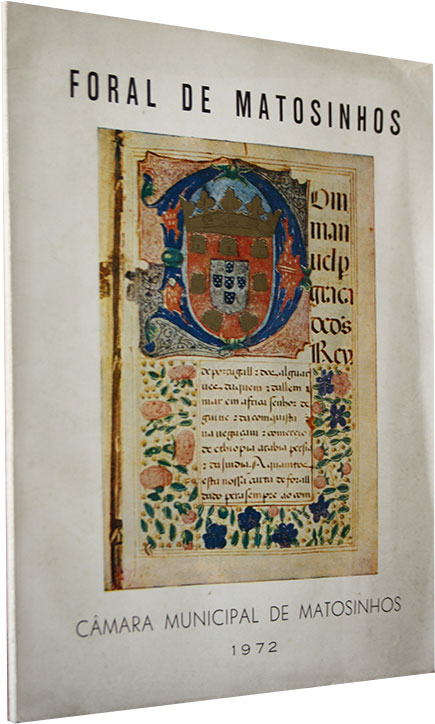 FORAL DE MATOSINHOS
Dom
man
uel p
graça
de d's
Rey.
de portugall & dos alguar
ues daquem & dallem
mar em africa senhor de
guine & da comquista
navegaçam & comercio
de ethiopia arabia persia
& da india. A quamtos
esta nossa carta de forall
dado pera sempre ao com
CÂMARA MUNICIPAL DE MATOSINHOS
1972